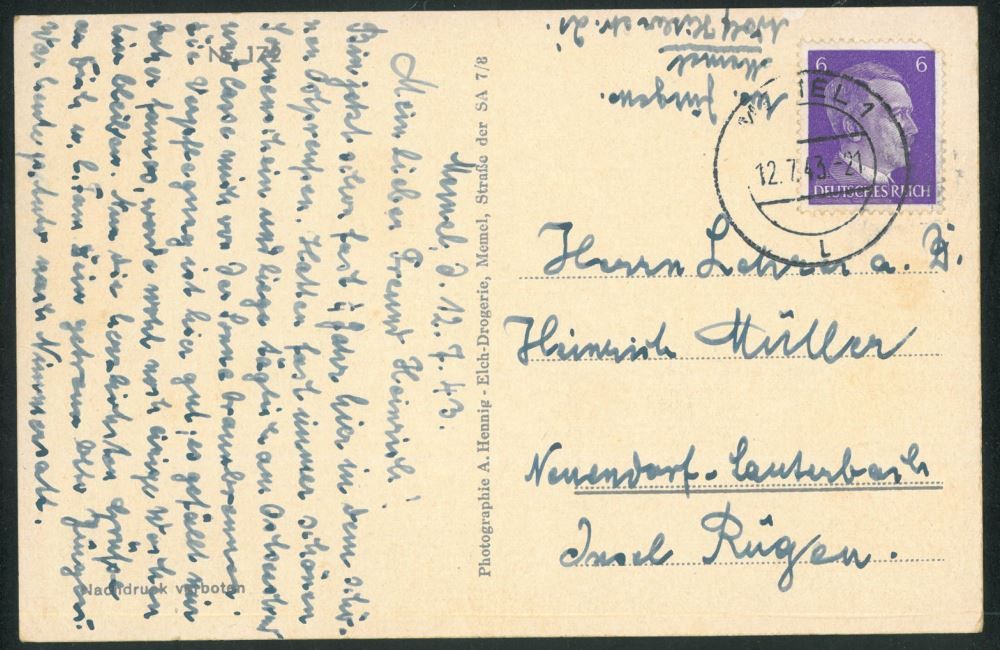 Memel, d. 12.7.43.
Mein lieber Freund Heinrich!
Bin jetzt schon fast 4 Jahre hier in dem schö-
nen Ostpreußen. Hatten fast immer schönen
Sonnenschein und liege täglich am Ostseestrand
und lasse mich von der Sonne braun brennen.
Die Verpflegung ist hier gut, es gefällt mir
hier bleiben. Nun die herzlichsten Grüße
an Dich u. l. Fam. Dein getreuer Otto Jürgens.
Nachdruck verboten
Photographie A. Hennig - Elch-Drogerie, Memel, Straße der SA 7/8
Memel
Adolf Hitler str.
6 6
DEUTSCHES REICH
MEMEL 1
12.7.43.-21
Herrn Lehrer a. D.
Heinrich Müller
Neuendorf-Lauterbach
Insel Rügen.